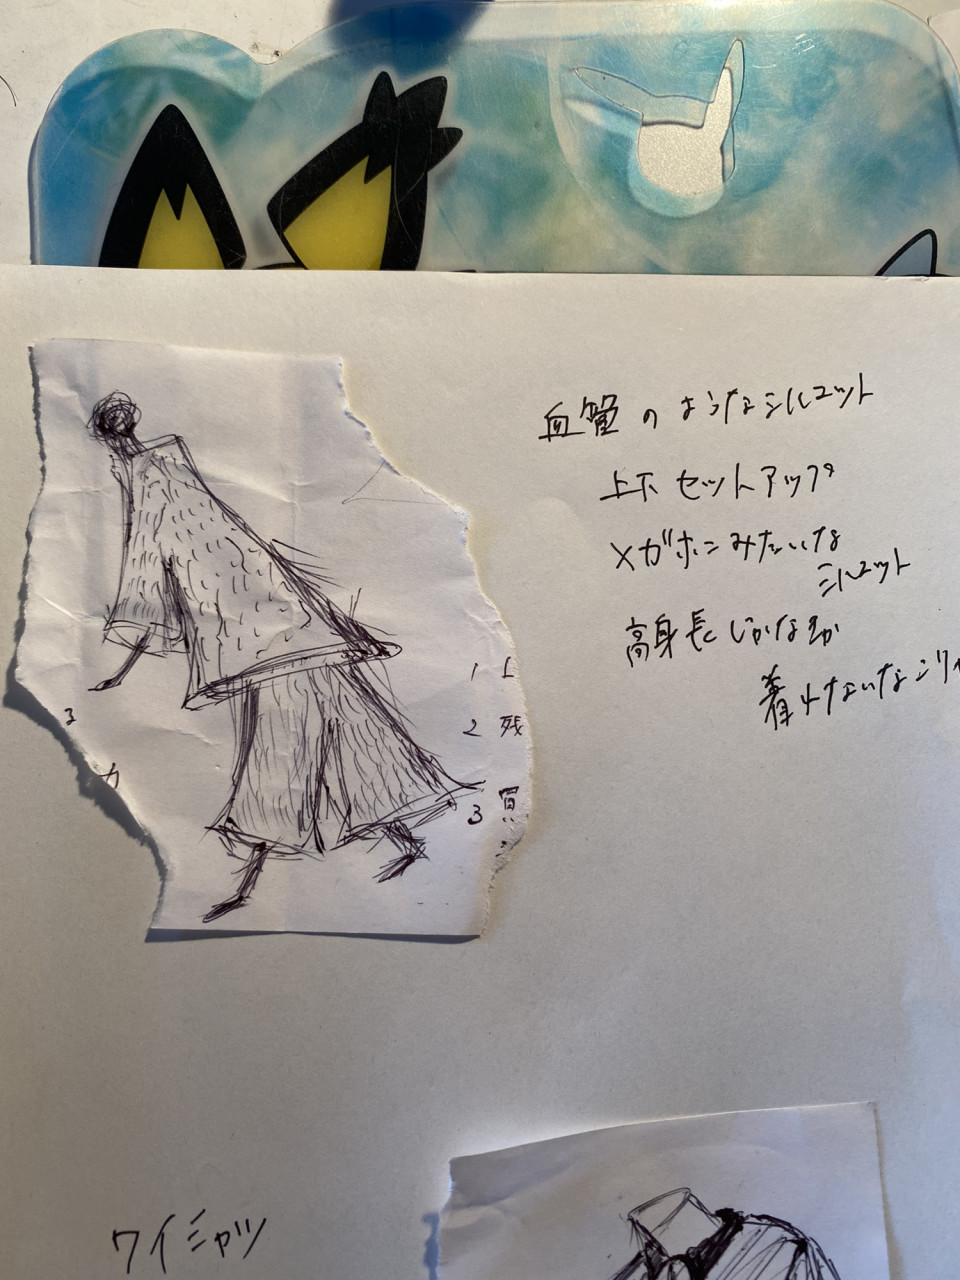 血管のようなシルエット
上下セットアップ
メガホンみたいな
シルエット
高身長じゃなきゃ
着れないなこりゃ
1 し
2 残
3 買
3
カ
ワイシャツ